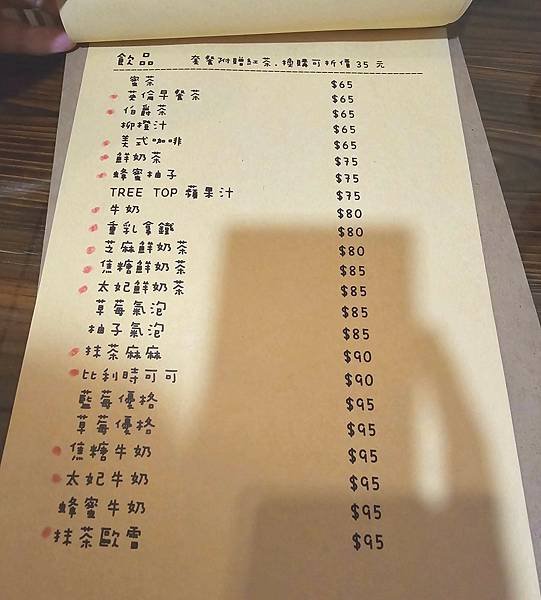 飲品 套餐附贈紅茶.換購可折價35元
蜜茶 $65
英倫早餐茶 $65
伯爵茶 $65
柳橙汁 $65
美式咖啡 $65
鮮奶茶 $75
蜂蜜柚子 $75
TREE TOP 蘋果汁 $75
牛奶 $80
重乳拿鐵 $80
芝麻鮮奶茶 $80
焦糖鮮奶茶 $85
太妃鮮奶茶 $85
草莓氣泡 $85
柚子氣泡 $85
抹茶麻麻 $90
比利時可可 $90
藍莓優格 $95
草莓優格 $95
焦糖牛奶 $95
太妃牛奶 $95
蜂蜜牛奶 $95
抹茶歐蕾 $95